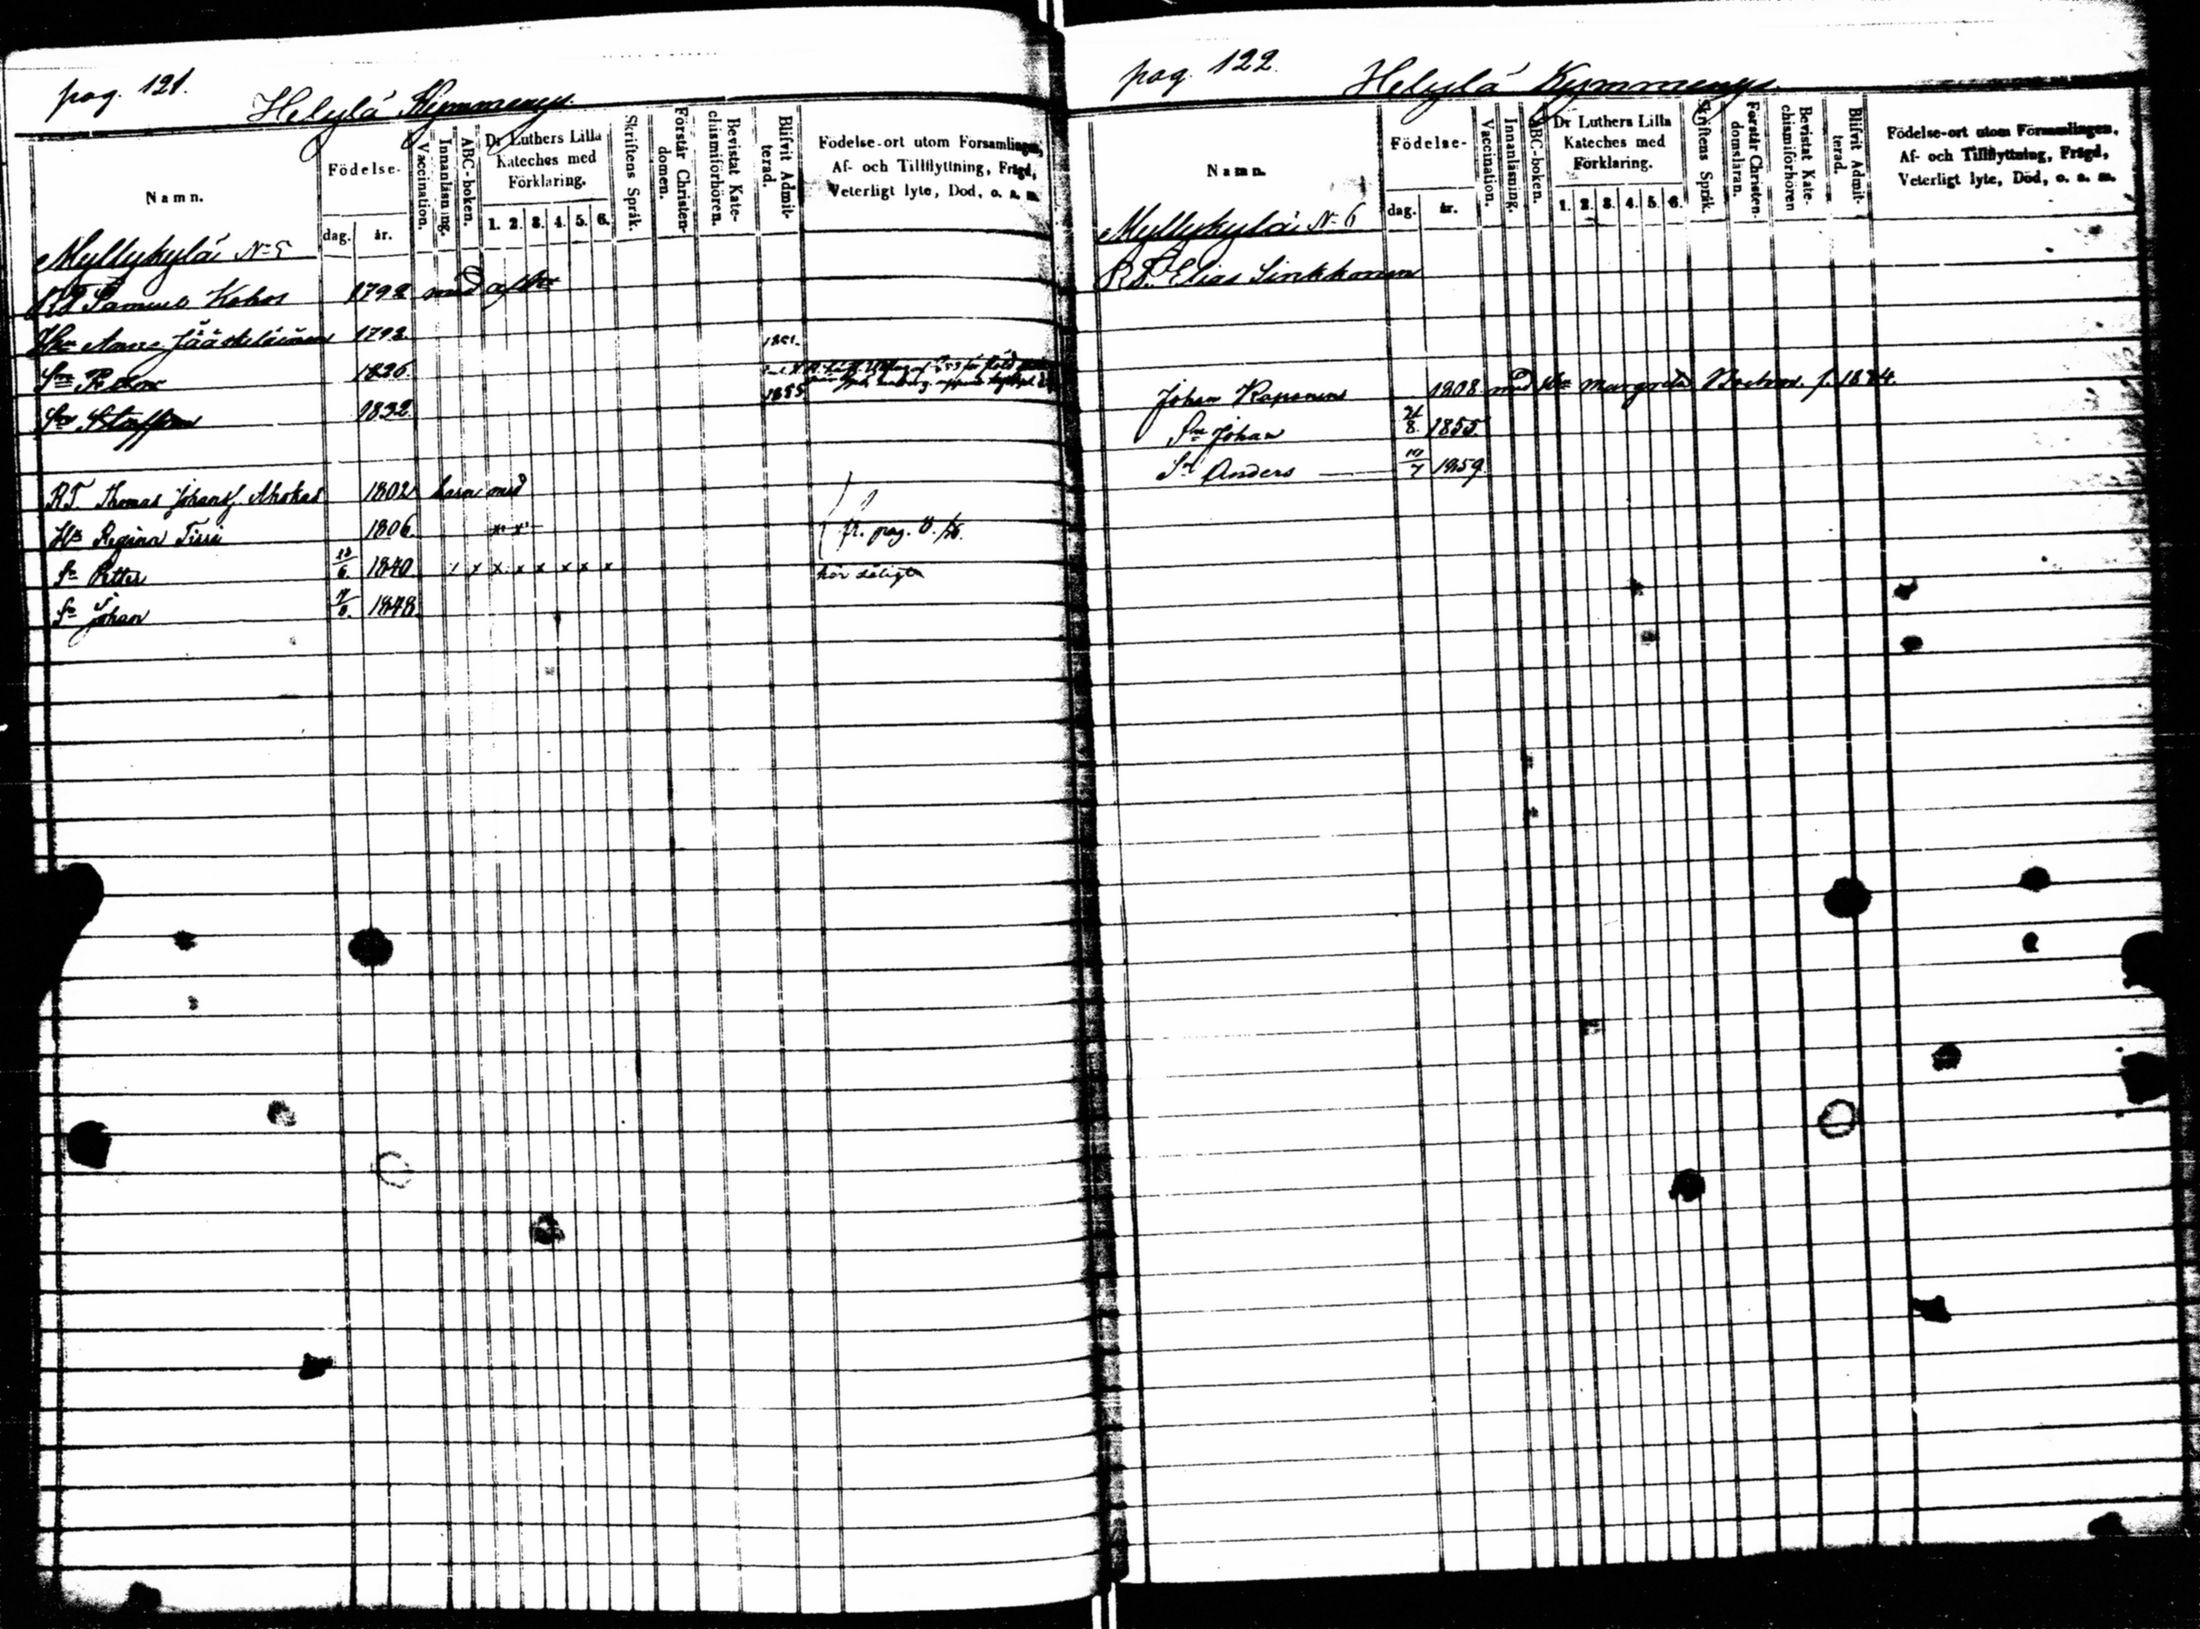 pag. 121.
Helylä Kymmenys.
Namn.
Födelse-
dag.
år.
Vaccination.
Innanläsning.
ABC-boken.
Dr Luthers Lilla
Kateches med
Förklaring.
1. 2. 3. 4. 5. 6.
Skriftens Språk.
Förstår Christen-
domen.
Bevistat Kate-
chismiförhören.
Blifvit Admit-
terad.
Födelse-ort utom Församlingen,
Af- och Tillflyttning, Frägd,
Veterligt lyte, Död, o. s. m.
Myllykylä № 5
RT Samuel Kohos 1792 med
Hu Anna Jääskeläinen 1792. 1851.
Sm Petter 1826.
1855
Sm Staffan 1832
RT. Thomas Johansf. Ahokas 1802 barn med
Hu Regina Tissi 1806. x x fr. pag.
Sn Petter 12/6 1840. x x x x x x x x hör dåligt
Sn Johan 1848
pag. 122.
Helylä Kymmenys.
Namn.
Födelse-
dag.
år.
Vaccination.
Innanläsning.
ABC-boken.
Dr Luthers Lilla
Kateches med
Förklaring.
1. 2. 3. 4. 5. 6.
Skriftens Språk.
Förstår Christen-
domsläran.
Bevistat Kate-
chismiförhören
Blifvit Admit-
terad.
Födelse-ort utom Församlingen,
Af- och Tillflyttning, Frägd,
Veterligt lyte, Död, o. s. m.
Myllykylä № 6
RT. Elias Sinkkonen
Johan Kaponen 1808 med Margreta f. 1824.
Sn Johan 21/8 1855.
Sn Anders 10/7 1859.